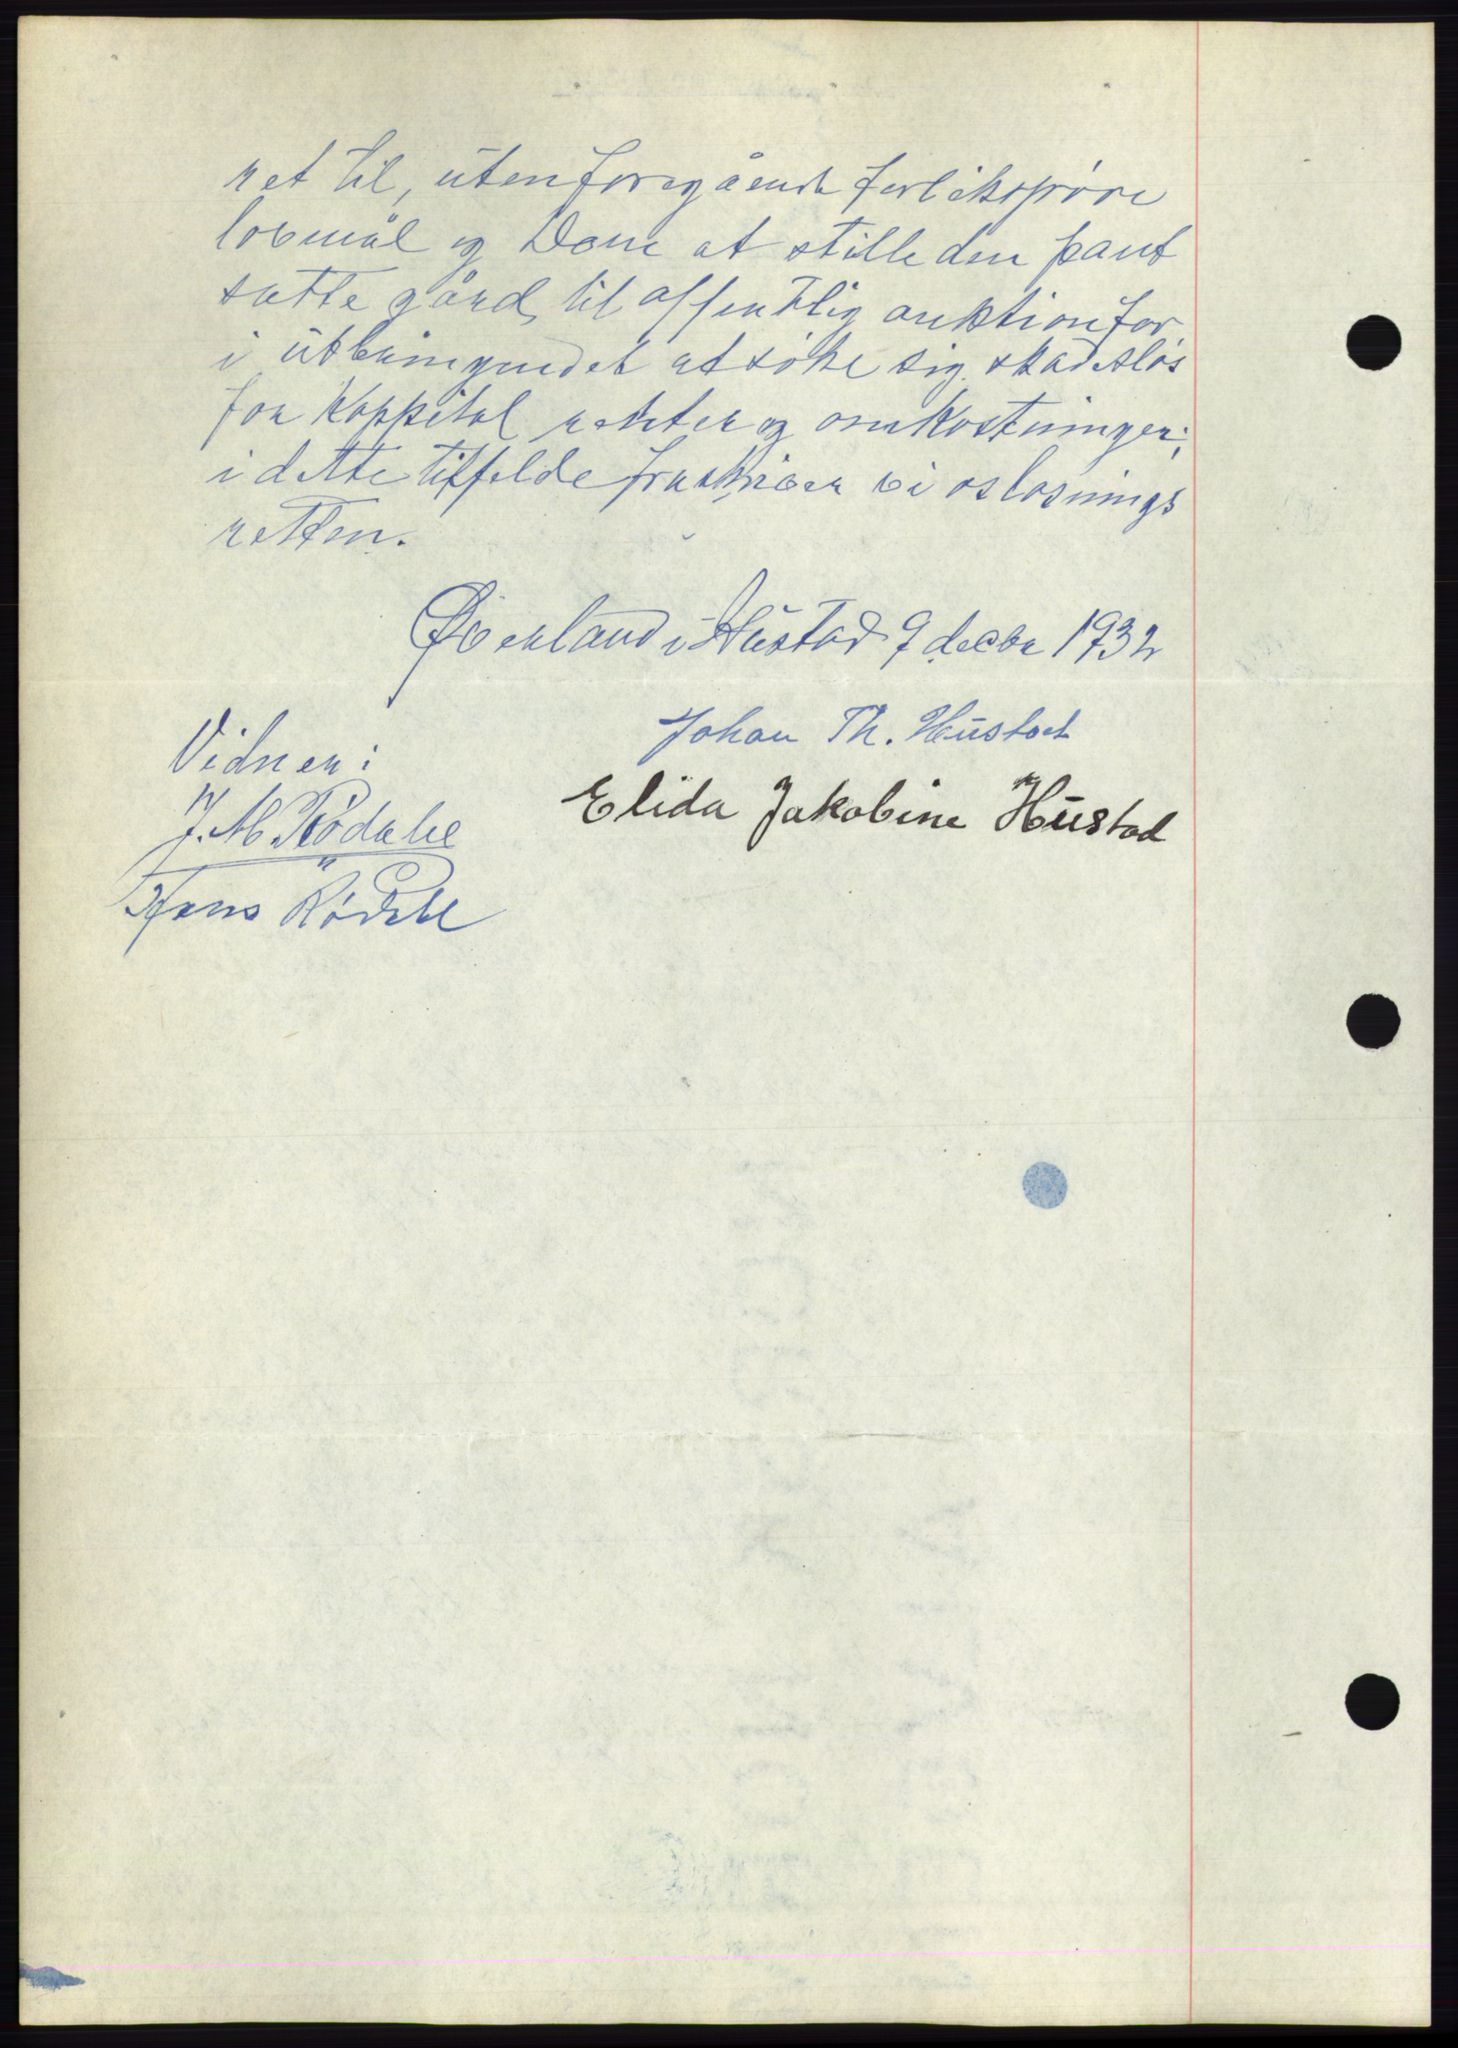 ret til, uten foregående forliksprøve
lovmål og Dom at stille den pant
satte gård, til offentlig auktion for
i utbringendet at søke sig skadesløs
for Kappital renter og omkostninger;
i dette tilfelde fraskriver vi os løsnings
retten.
Øverland i Hustad 9 decbr 1932
Johan Th. Hustad
Vidner:
Elida Jakobine Hustad
J. M. Rødahl
Hans Rødahl